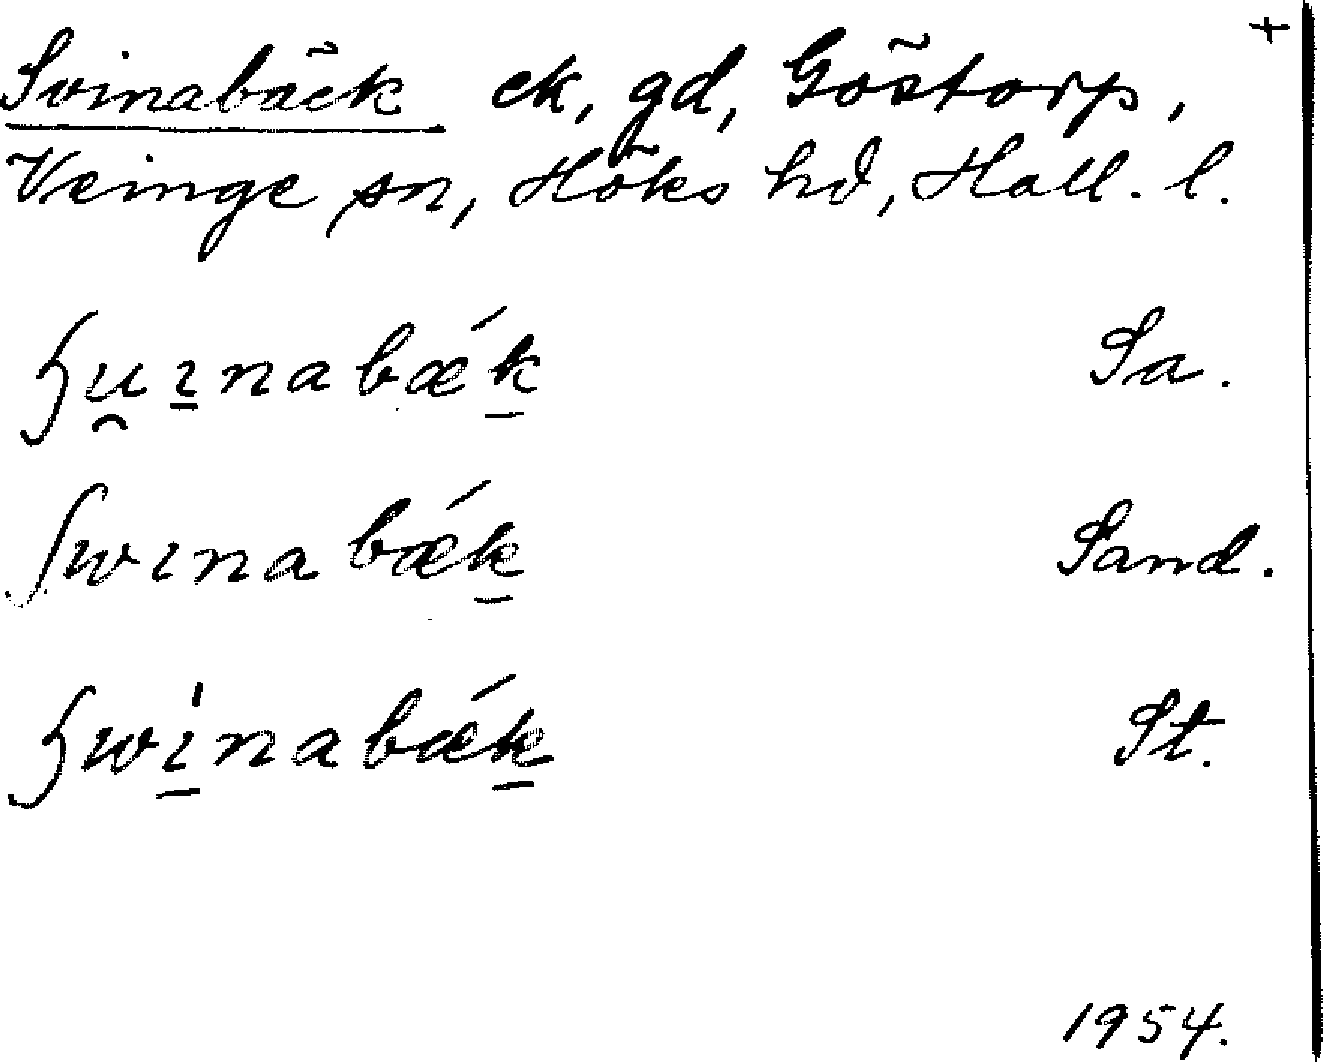 +
Svinabäck ck, gd, Göstorp,
Veinge sn, Höks hd, Hall. l.
ʂu̯ı̲nabǽk̲ Sa.
ʃwınabǽk̲ Sand.
ʂwı̲̍nabǽk̲ St.
1954.